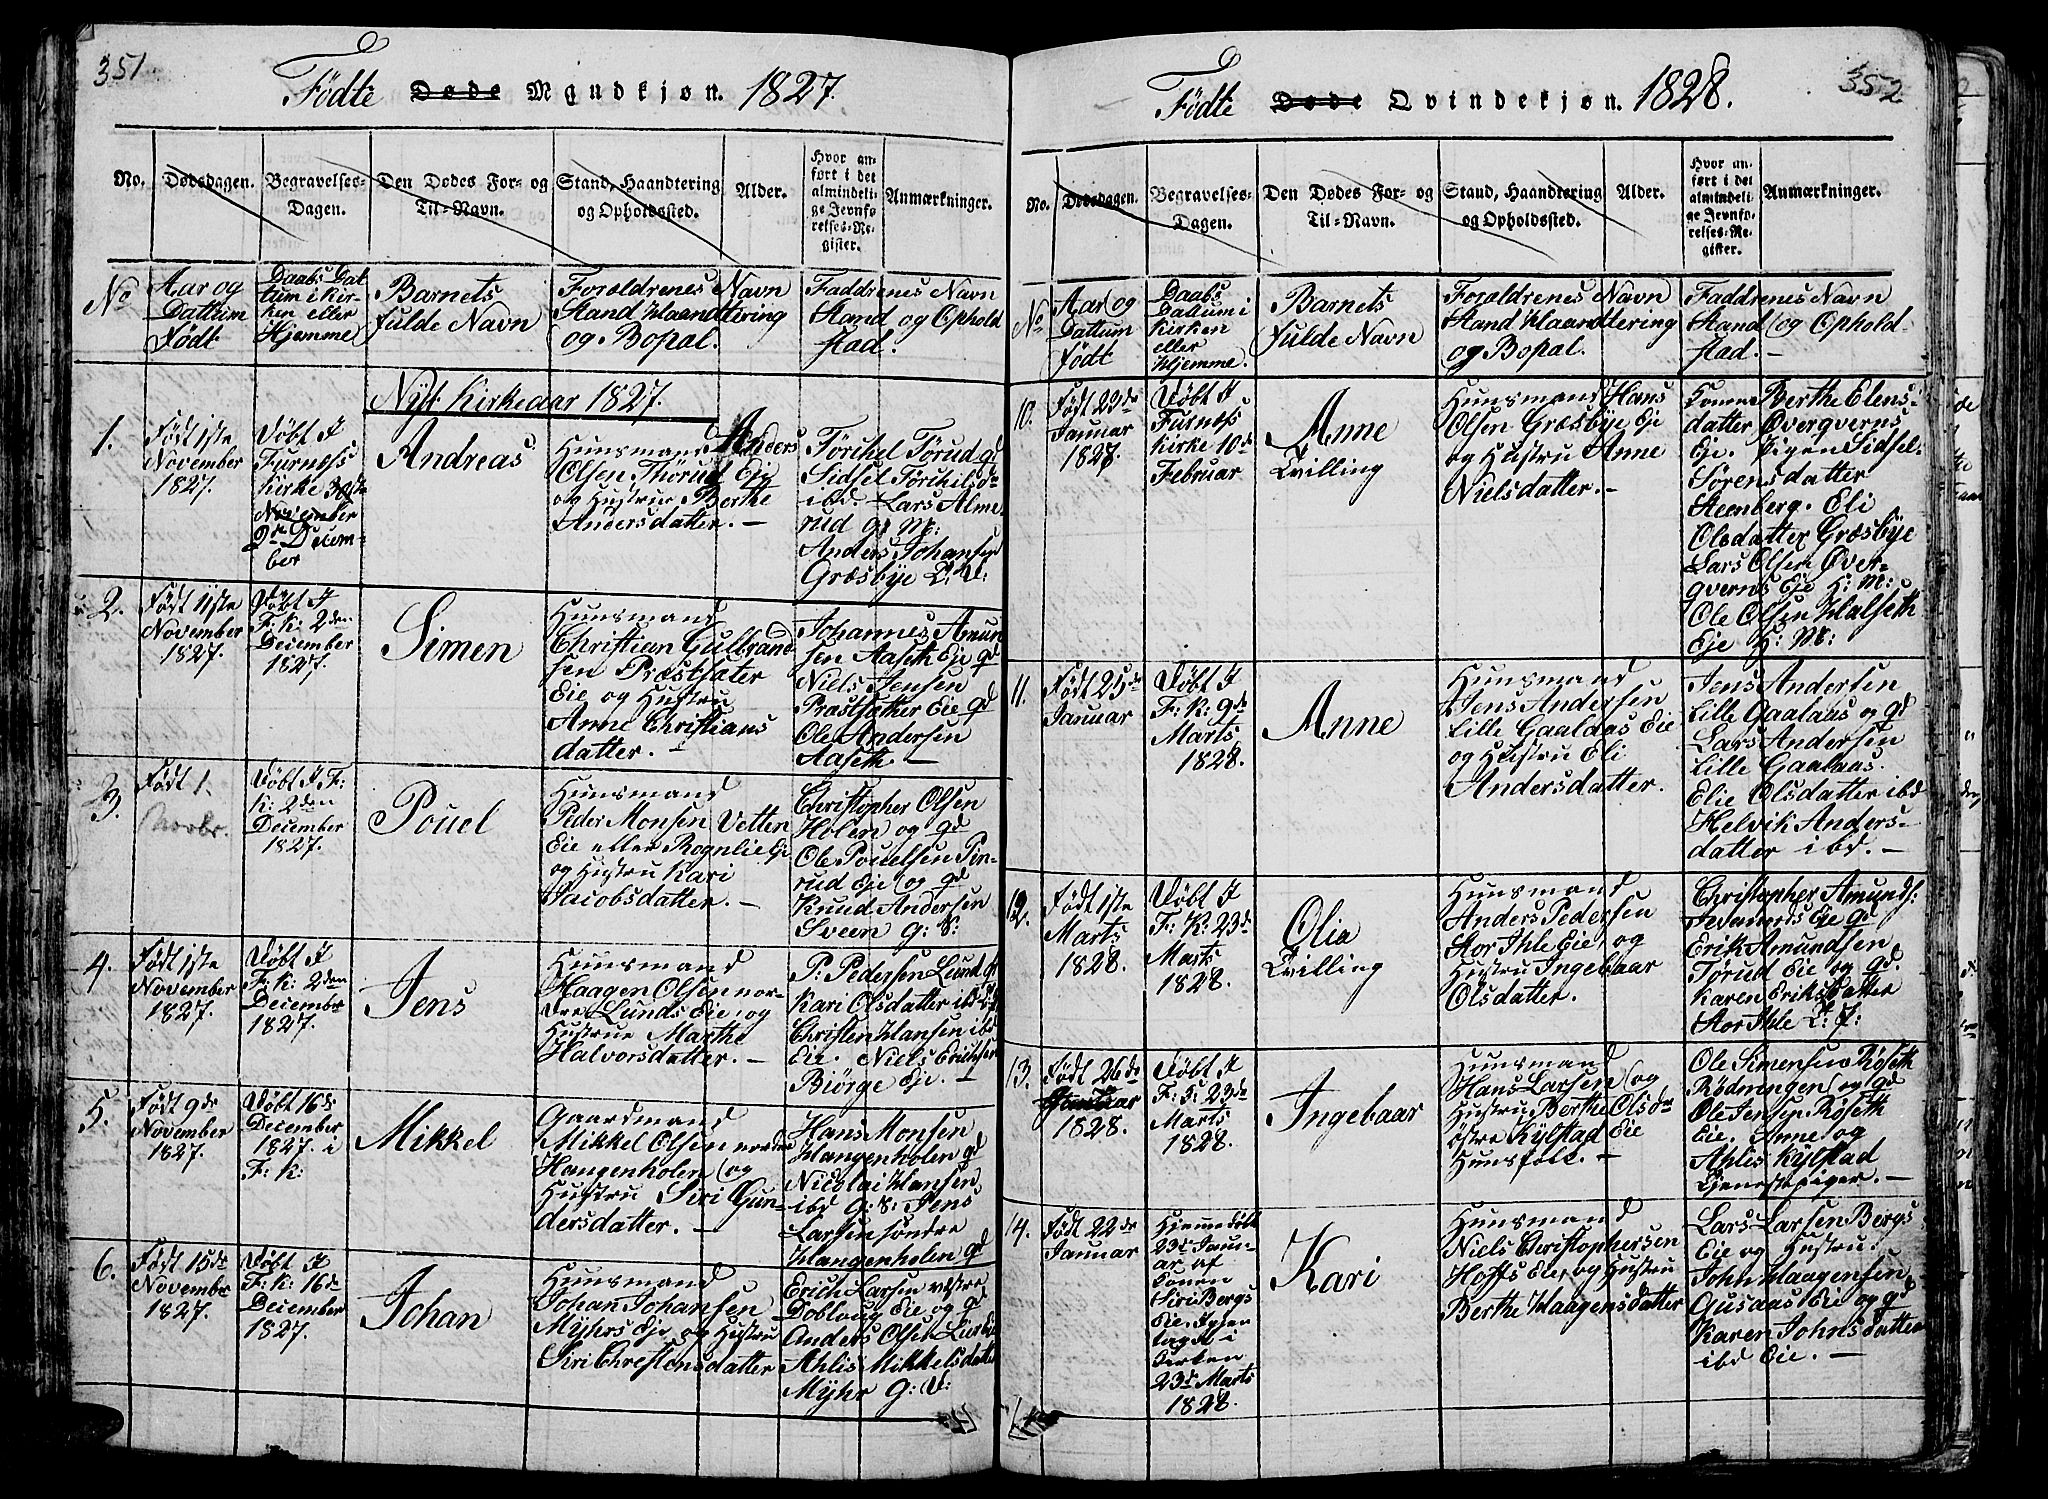 351
Födte Døde Mandkjøn. 1827.
No.
Dødsdagen.
Begravelses-
Dagen.
Den Dødes For- og
Til-Navn.
Stand, Haandtering
og Opholdssted.
Alder.
Hvor an-
ført i det
almindeli-
ge Jevnfø-
relses-Re-
gister.
Anmærkninger.
No
Aar og
Dattum
Födt
Daabs Dat
tum i Kir-
ken eller
Hjemme
Barnets
fulde Navn
Forældrenes Navn
Stand Haandtering
og Bopal.
Faddrenes Navn
Stand og Ophold
stad.
Nÿt Kirkeaar 1827.
1.
Födt 1ste
November
1827.
Döbt I
Furness
Kirke 30te
November
2n Decem-
ber
Andreas
Huusmand Anders
Olsen Thorud Eje
og Hustrue Berthe
Andersdatter. —
Törchel Törud gd
Sidsel Törchilsdr
ibd. Lars Alme
rud G: M:
Anders Johansen
Græsbÿe
2.
Födt 11ste
November
1827.
Döbt I
F: K: 2den
December
1827.
Simen
Huusmand
Christian Gulbrand
sen Præstsæter
Eie og Hustru
Anne Christians
datter. —
Johannes Amun
sen Aaseth Eje gd
Niels Jensen
Prastsæther Eie gd
Ole Andersen
Aaseth —
3.
Födt 1.
Novbr.
Döbt I F:
K: 2den
December
1827.
Pouel
Huusmand
Peder Monsen Vetten
Eie eller Rognlie Eje
og Hustru Kari
Jacobsdatter. —
Christopher Olsen
Holen og gd
Ole Pouelsen Pin-
rud Eje og gd
Knud Andersen
Sveen G: S:
4.
Födt 1ste
November
1827.
Döbt I
F: K: 2den
December
1827.
Jens
Huusmand
Haagen Olsen nor-
dre Lunds Eie, og
Hustrue Marthe
Halvorsdatter. —
P: Pedersen Lund
Kari Olsdatter ibd
Christen Hansen ibd
Eie. Niels Erichsen
Biörge Eje. —
5.
Födt 9de
November
1827.
Döbt 16de
December
1827. i
F: K:
Mikkel
Gaardmand
Mikkel Olsen nordre
Haugenholen og
Hustru Siri Gun-
dersdatter. —
Hans Monsen
Haugenholen gd
Nicolai Hansen
ibd G: S: Jens
Larsen söndre
Haugenholen gd
6.
Födt 15de
November
1827.
Döbt I
F: K: 16de
December
1827.
Johan
Huusmand
Johan Johansen
Mÿhrs Eje og Hustru
Siri Chrestensdatter
Erich Larsen vestre
Dobloug Eie og gd
Anders Olsen
Ahlis Mikkelsdatter
Mÿhr G: V:
352
Födte Døde Qvindekjøn. 1828.
No.
Dødsdagen.
Begravelses-
Dagen.
Den Dødes For- og
Til-Navn.
Stand, Haandtering
og Opholdssted.
Alder.
Hvor an-
ført i det
almindeli-
ge Jevnfø-
relses-Re-
gister.
Anmærkninger.
No
Aar og
Dattum
Födt
Daabs
Dattum i
Kirken
eller
Hjemme.
Barnets
fulde Navn
Forældrenes Navn
Stand Haandtering
og Bopal.
Faddrenes Navn
Stand og Ophold-
stad. —
10.
Födt 23de
Januar
1828.
Döbt I
Furness
Kirke 10de
Februar
Anne
Tvilling
Huusmand Hans
Olsen Græsbÿe Eje
og Hustru Anne
Nielsdatter. —
Konne Berthe Elens
datter Överqverns
Eje. Pigen Sidsel
Sörensdatter
Steenberg. Eli
Olsdatter Græsbÿe
Lars Olsen Över-
qverns Eje H: M:
Ole Olsen Halseth
Eje H: M:
11.
Födt 25de
Januar
Döbt I
F: K: 9de
Marts
1828.
Anne
Huusmand
Jens Andersen
Lille Gaalaas Eie
og Hustru Eli
Andersdatter.
Jens Andersen
Lille Gaalaas og gd
Lars Andersen
Lille Gaalaas.
Elie Olsdatter ibd
Helvik Anders-
datter ibd. —
12.
Födt 1ste
Marts
1828.
Döbt I
F: K: 23de
Marts
1828.
Olia
Tvilling
Huusmand
Anders Pedersen
Stor Ihle Eie, og
Hustru Ingebaar
Olsdatter.
Christopher Amunds:
Eie gd
Erik Amundsen
Törud Eie og gd.
Karen Eriksdatter
Stor Ihle
13.
Födt 26de
Januar
1828.
Döbt I
F: K: 23de
Marts
1828.
Ingebaar
Huusmand
Hans Larsen og
Hustru Berthe Olsdr
östre Kÿlstad Eie
Huusfolk. —
Ole Simensen Röseth
Rödningen og gd
Ole Jensen Röseth
Eie. Anne og
Ahlis Kÿlstad
Tjenestepiger. —
14.
Födt 22de
Januar
Hjemme döbt
23de Janu-
ar af
Konen
Siri Bergs
Eie, Igjen
taget i
Kirken
23de Marts
1828.
Kari
Huusmand
Niels Christophersen
Hoffs Eie, og Hustru
Berthe Haagensdatter
Lars Larsen Bergs
Eie og Hustru.
John Haagensen
Gusaas Eie og gd
Karen Johnsdatter
ibd Eie. —